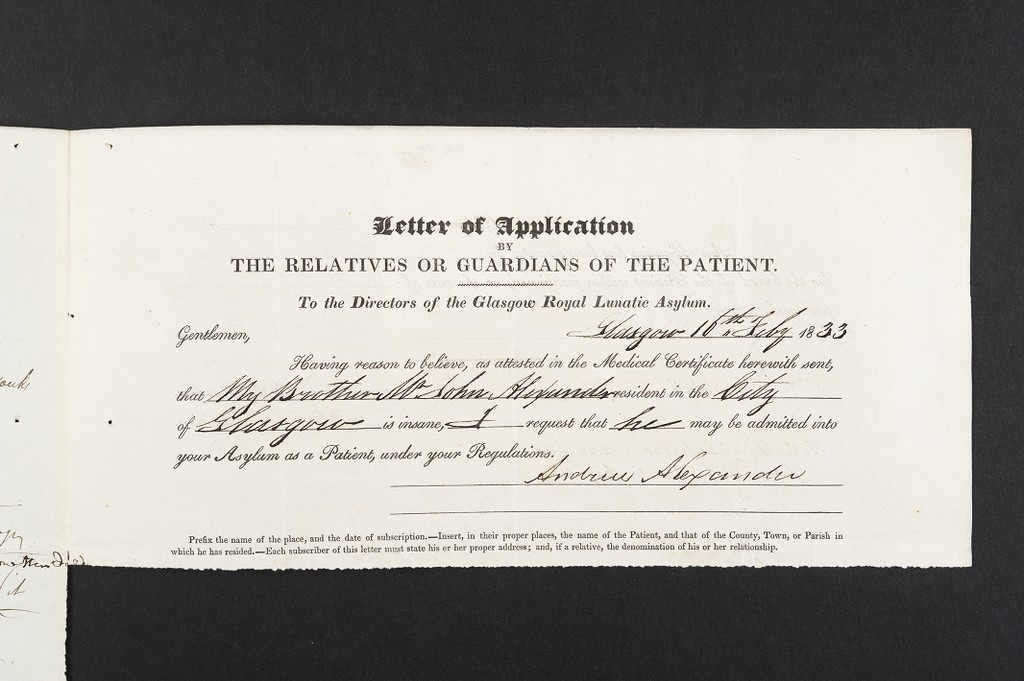 Letter of Application
BY
THE RELATIVES OR GUARDIANS OF THE PATIENT.
To the Directors of the Glasgow Royal Lunatic Asylum.
Glasgow 16th Feby 1833
Gentlemen,
Having reason to believe, as attested in the Medical Certificate herewith sent,
that My Brother Mr. John Alexander resident in the City
of Glasgow is insane, I request that he may be admitted into
your Asylum as a Patient, under your Regulations.
Andrew Alexander
Prefix the name of the place, and the date of subscription.—Insert, in their proper places, the name of the Patient, and that of the County, Town, or Parish in
which he has resided.—Each subscriber of this letter must state his or her proper address; and, if a relative, the denomination of his or her relationship.